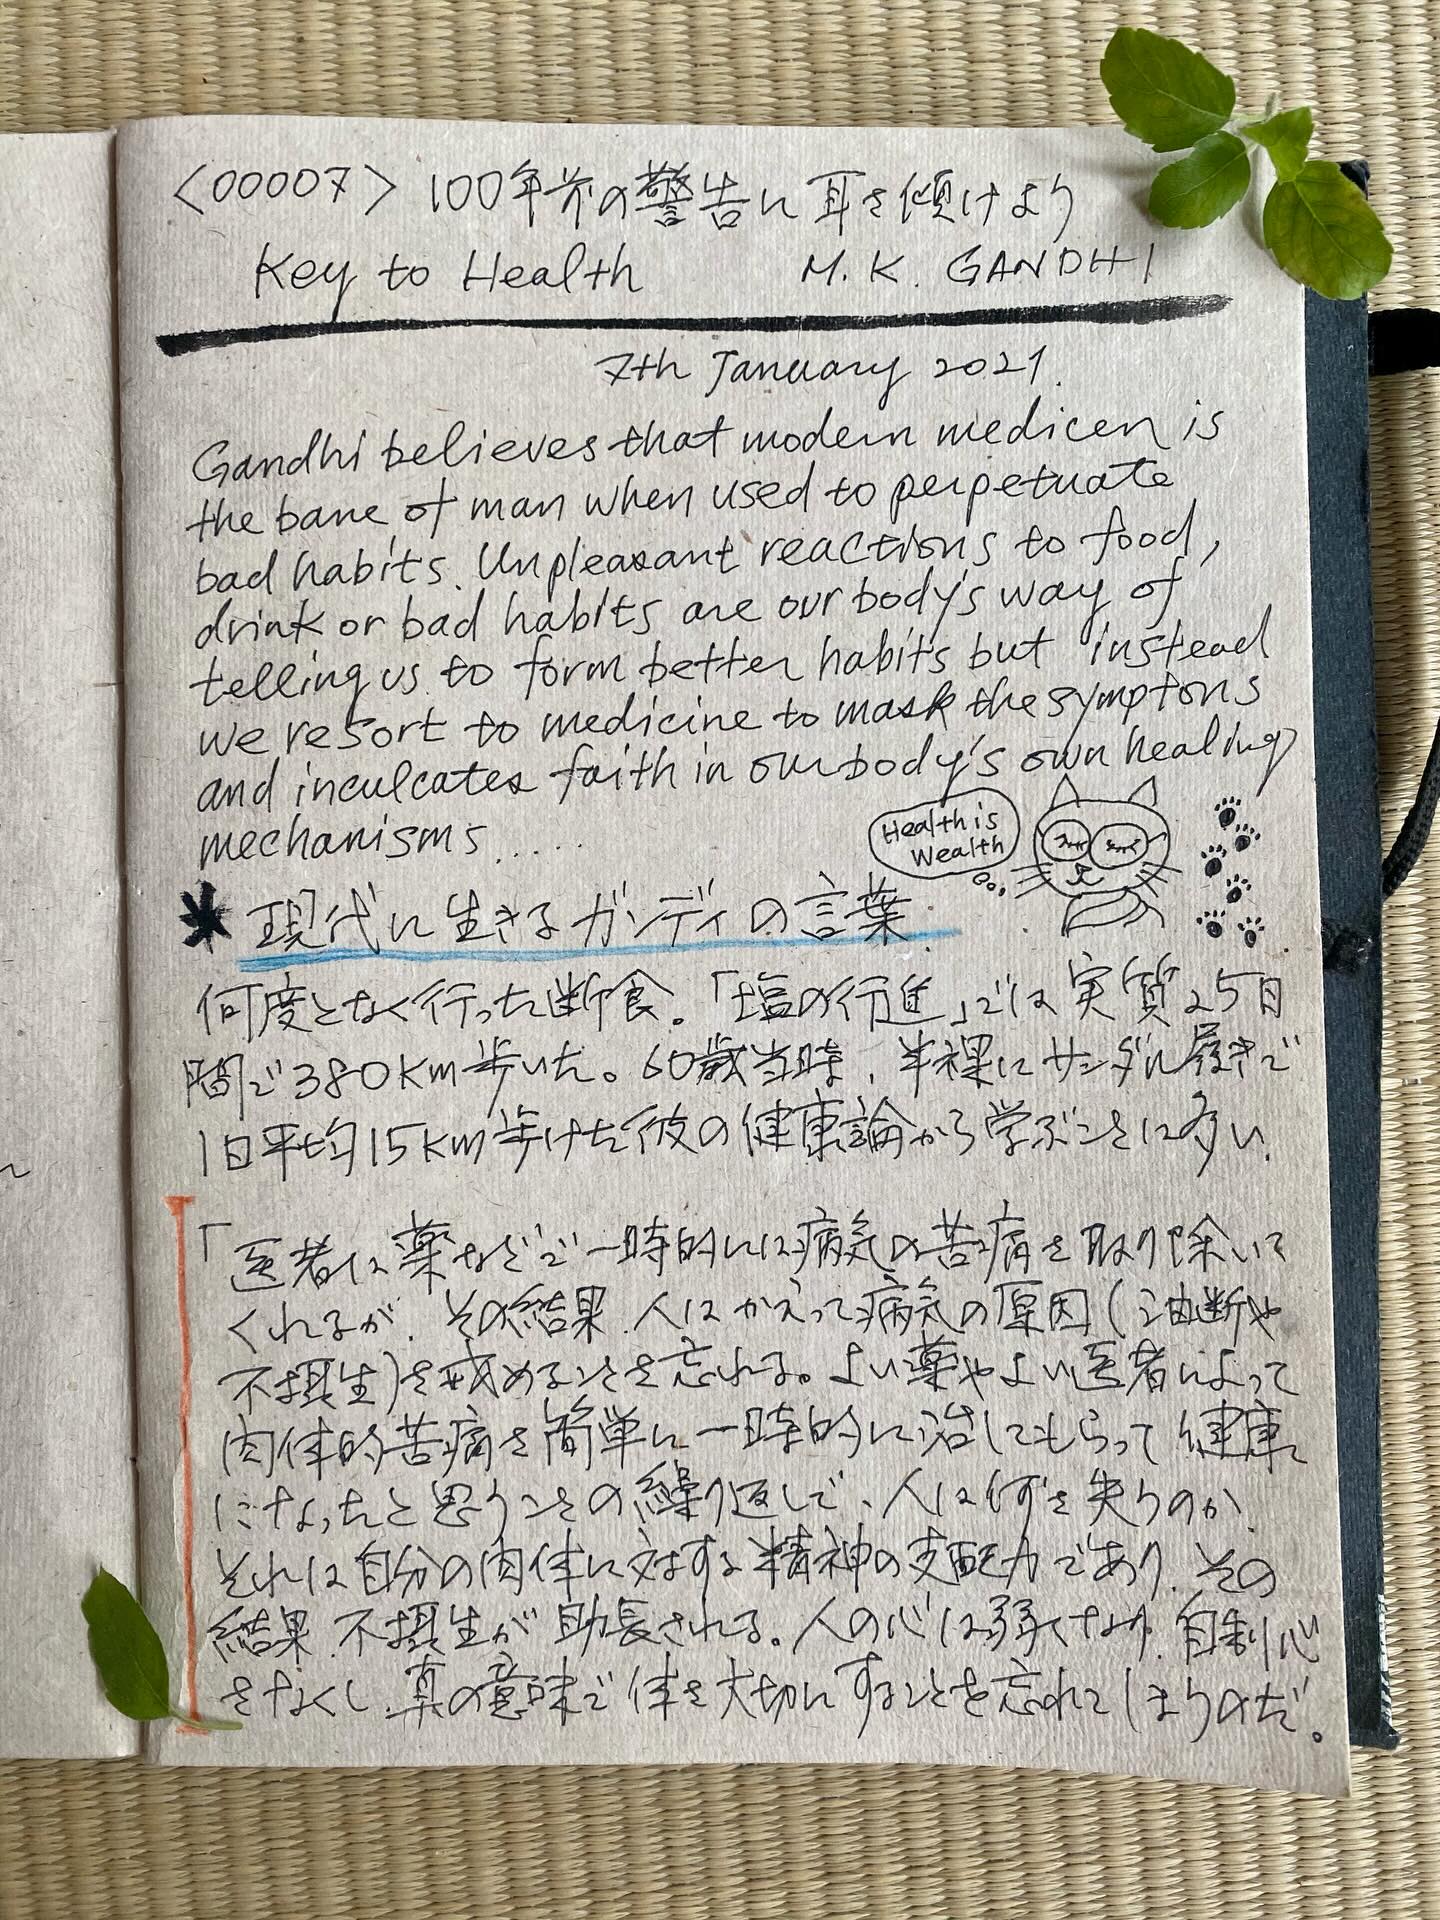 <00007> 100年前の警告に耳を傾けよう
Key to Health M. K. GANDHI
7th January 2021.
Gandhi believes that modern medicen is
the bane of man when used to perpetuate
bad habits. Unpleasant reactions to food,
drink or bad habits are our body's way of
telling us to form better habits but instead
we resort to medicine to mask the symptons
and inculcates faith in our body's own healing
mechanisms.....
Health is
Wealth
* 現代に生きるガンディの言葉
何度となく行った断食。「塩の行進」では実質25日
間で380km歩いた。60歳当時、半裸にサンダル履きで
1日平均15km歩けた彼の健康論から学ぶことは多い.
「医者は薬などで一時的には病気の苦痛を取り除いて
くれるが、その結果、人はかえって病気の原因(油断や
不摂生)を戒めることを忘れる。よい薬やよい医者によって
肉体的苦痛を簡単に一時的に治してもらって健康
になったと思うことの繰り返しで、人は何を失うのか.
それは自分の肉体に対する精神の支配力であり、その
結果、不摂生が助長される。人の心は弱くなり、自制心
をなくし、真の意味で体を大切にすることを忘れてしまうのだ。